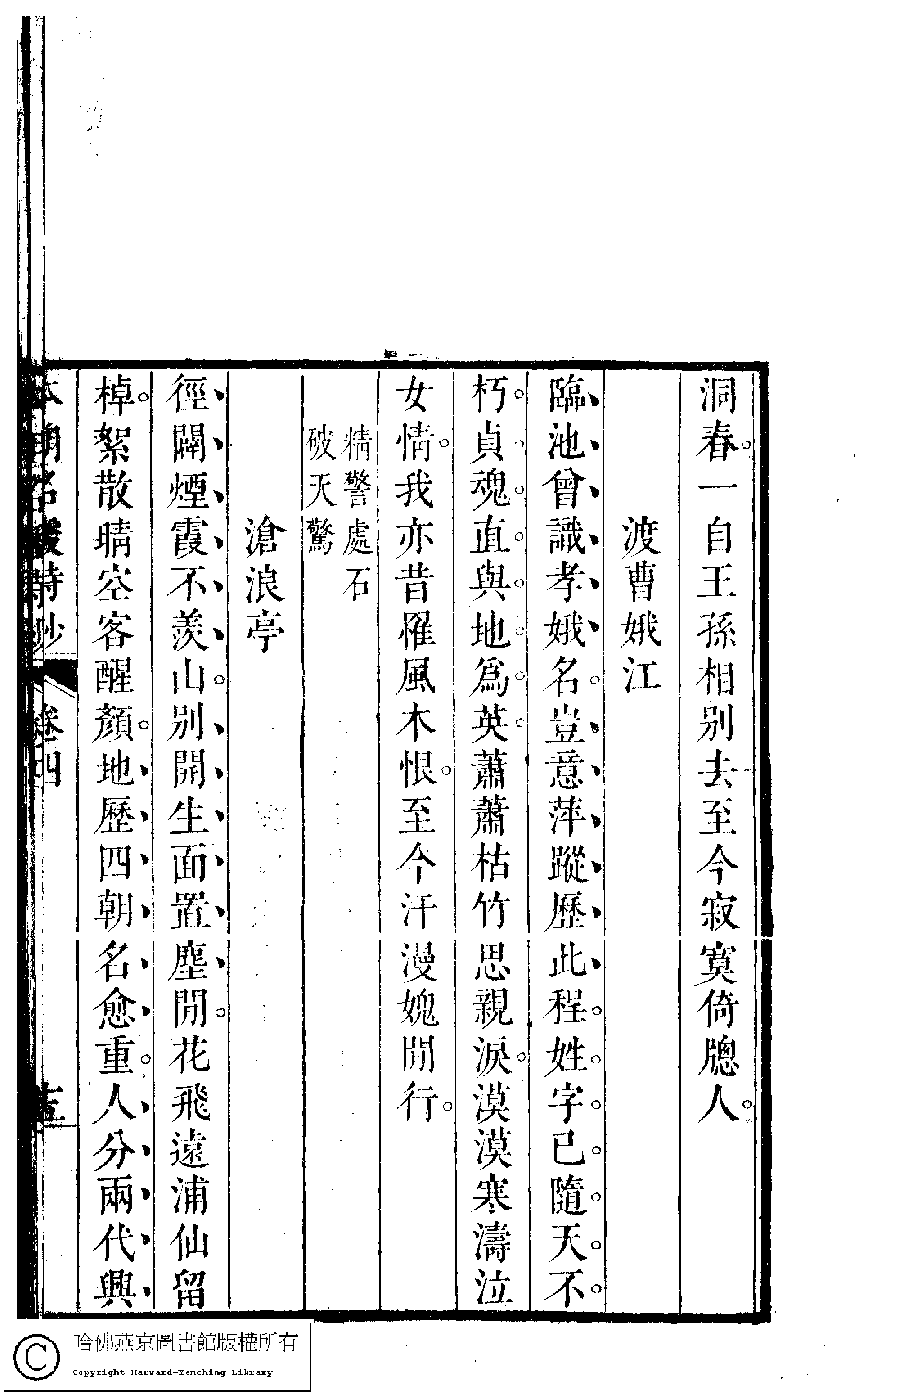 洞春。一自王孫相別去至今寂寞倚牕人。
渡曹娥江
臨池曾識孝娥名。豈意萍蹤歷此程。姓字已隨天不
朽。貞魂直與地爲英。蕭蕭枯竹思親淚。漠漠寒濤泣
女情。我亦昔罹風木恨。至今汗漫媿閒行。
精警處石
破天驚
滄浪亭
徑闢煙霞不羨山。別開生面置塵閒。花飛遠浦仙留
棹。絮散晴空客醒顏。地歷四朝名愈重。人分兩代興
本朝名媛詩鈔
卷四
哈佛燕京圖書館版權所有
Copyright Harvard-Yenching Library